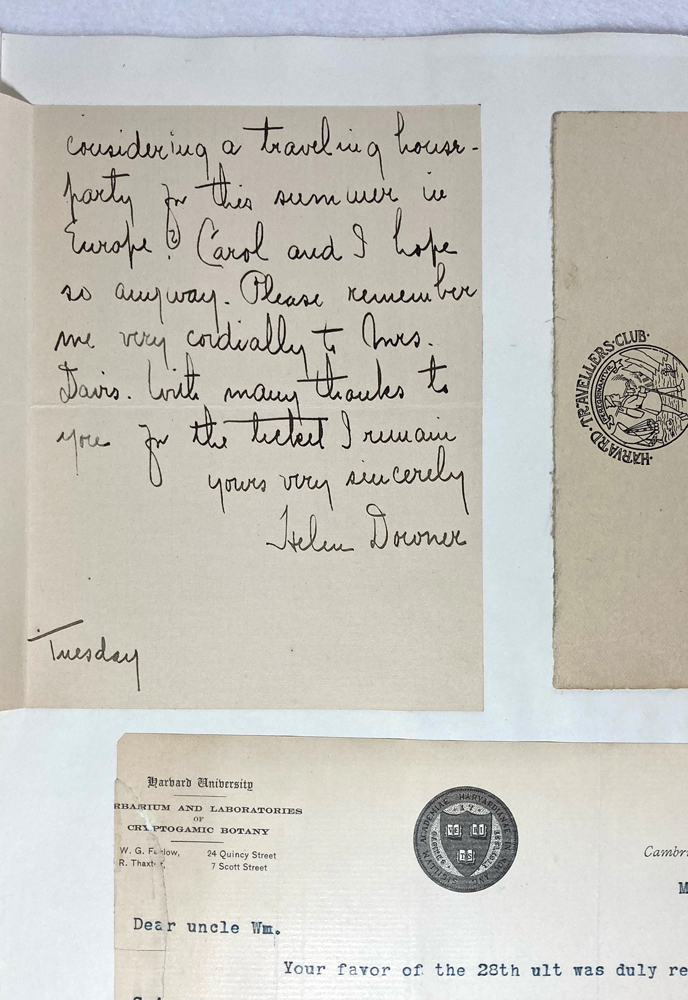 considering a traveling house-
party for this summer in
Europe? Carol and I hope
so anyway. Please remember
me very cordially to Mrs.
Davis. With many thanks to
you for the ticket I remain
yours very sincerely
Helen Downer
Tuesday
HARVARD·TRAVELLERS·CLUB·
Harvard University
RBARIUM AND LABORATORIES
OF
CRYPTOGAMIC BOTANY
W. G. Fa low, 24 Quincy Street
R. Thaxt r, 7 Scott Street
VE RI
TAS
Cambri
M
Dear uncle Wm.
Your favor of the 28th ult was duly re